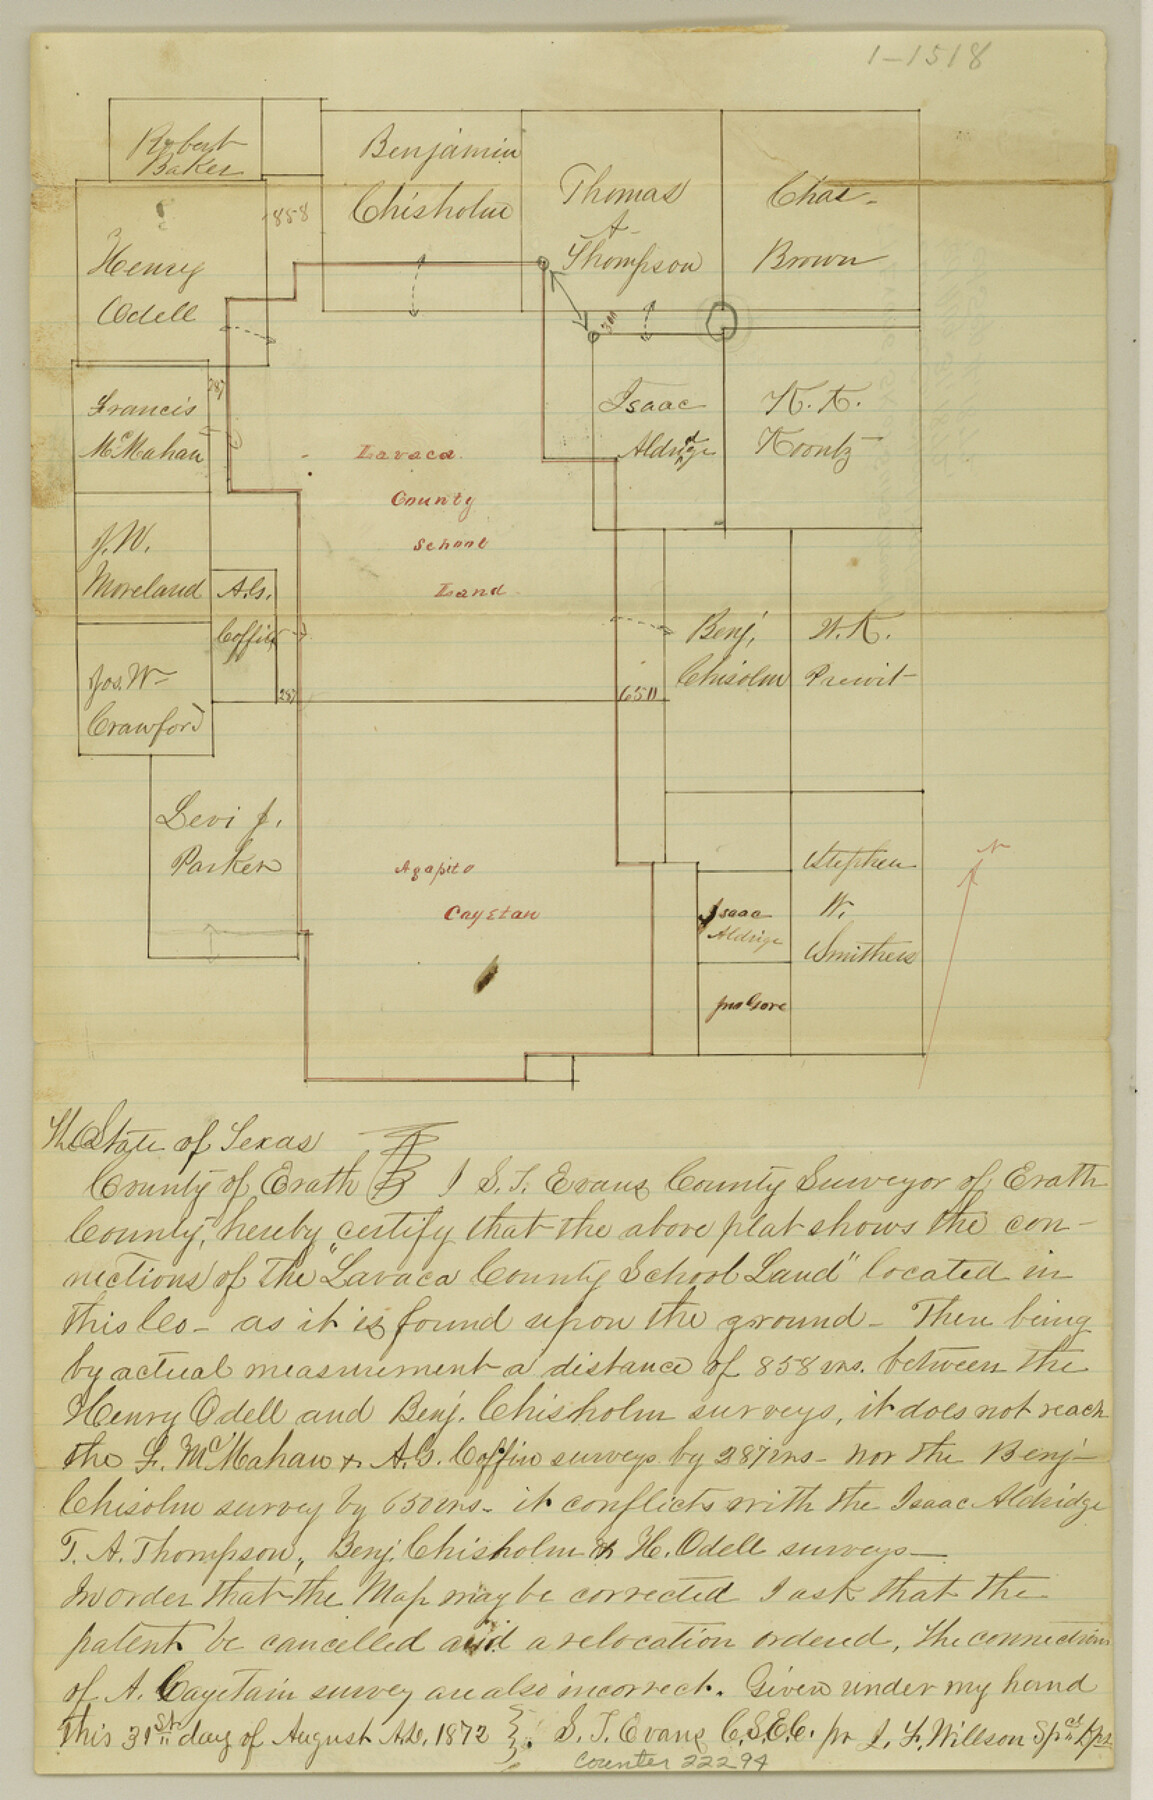 1-1518
Robert
Baker
Benjamin
Chisholm
Thomas
A.
Thompson
Chas.
Brown
858
Henry
Odell
300
Francis
McMahan
287
Isaac
Aldridge
K. K.
Koontz
Lavaca
County
School
Land
J. W.
Moreland
A. G.
Coffin
Benj.
Chisolm
W. K.
Prewit
Jos. W.
Crawford
287
650
Levi J.
Parker
Agapito
Cayetan
Isaac
Aldrige
Stephen
W.
Smithers
Jno Gore
N
The State of Texas
County of Erath I S. T. Evans County Surveyor of Erath
County, hereby certify that the above plat shows the con-
nections of the "Lavaca County School Land" located in
this Co- as it is found upon the ground- There being
by actual measurement a distance of 858 vrs. between the
Henry Odell and Benj. Chisholm surveys, it does not reach
the F. McMahan & A. G. Coffin surveys by 287 vrs- nor the Benj-
Chisolm survey by 650 vrs- it conflicts with the Isaac Aldridge
T. A. Thompson, Benj. Chisholm & H. Odell surveys-
In order that the Map may be corrected I ask that the
patent be cancelled and a relocation ordered, The connections
of A. Cayetain survey are also incorrect. Given under my hand
this 31st day of August A.D. 1872 S. T. Evans C.S.E.C. pr J. F. Willson Spcl Dpt
counter 22294